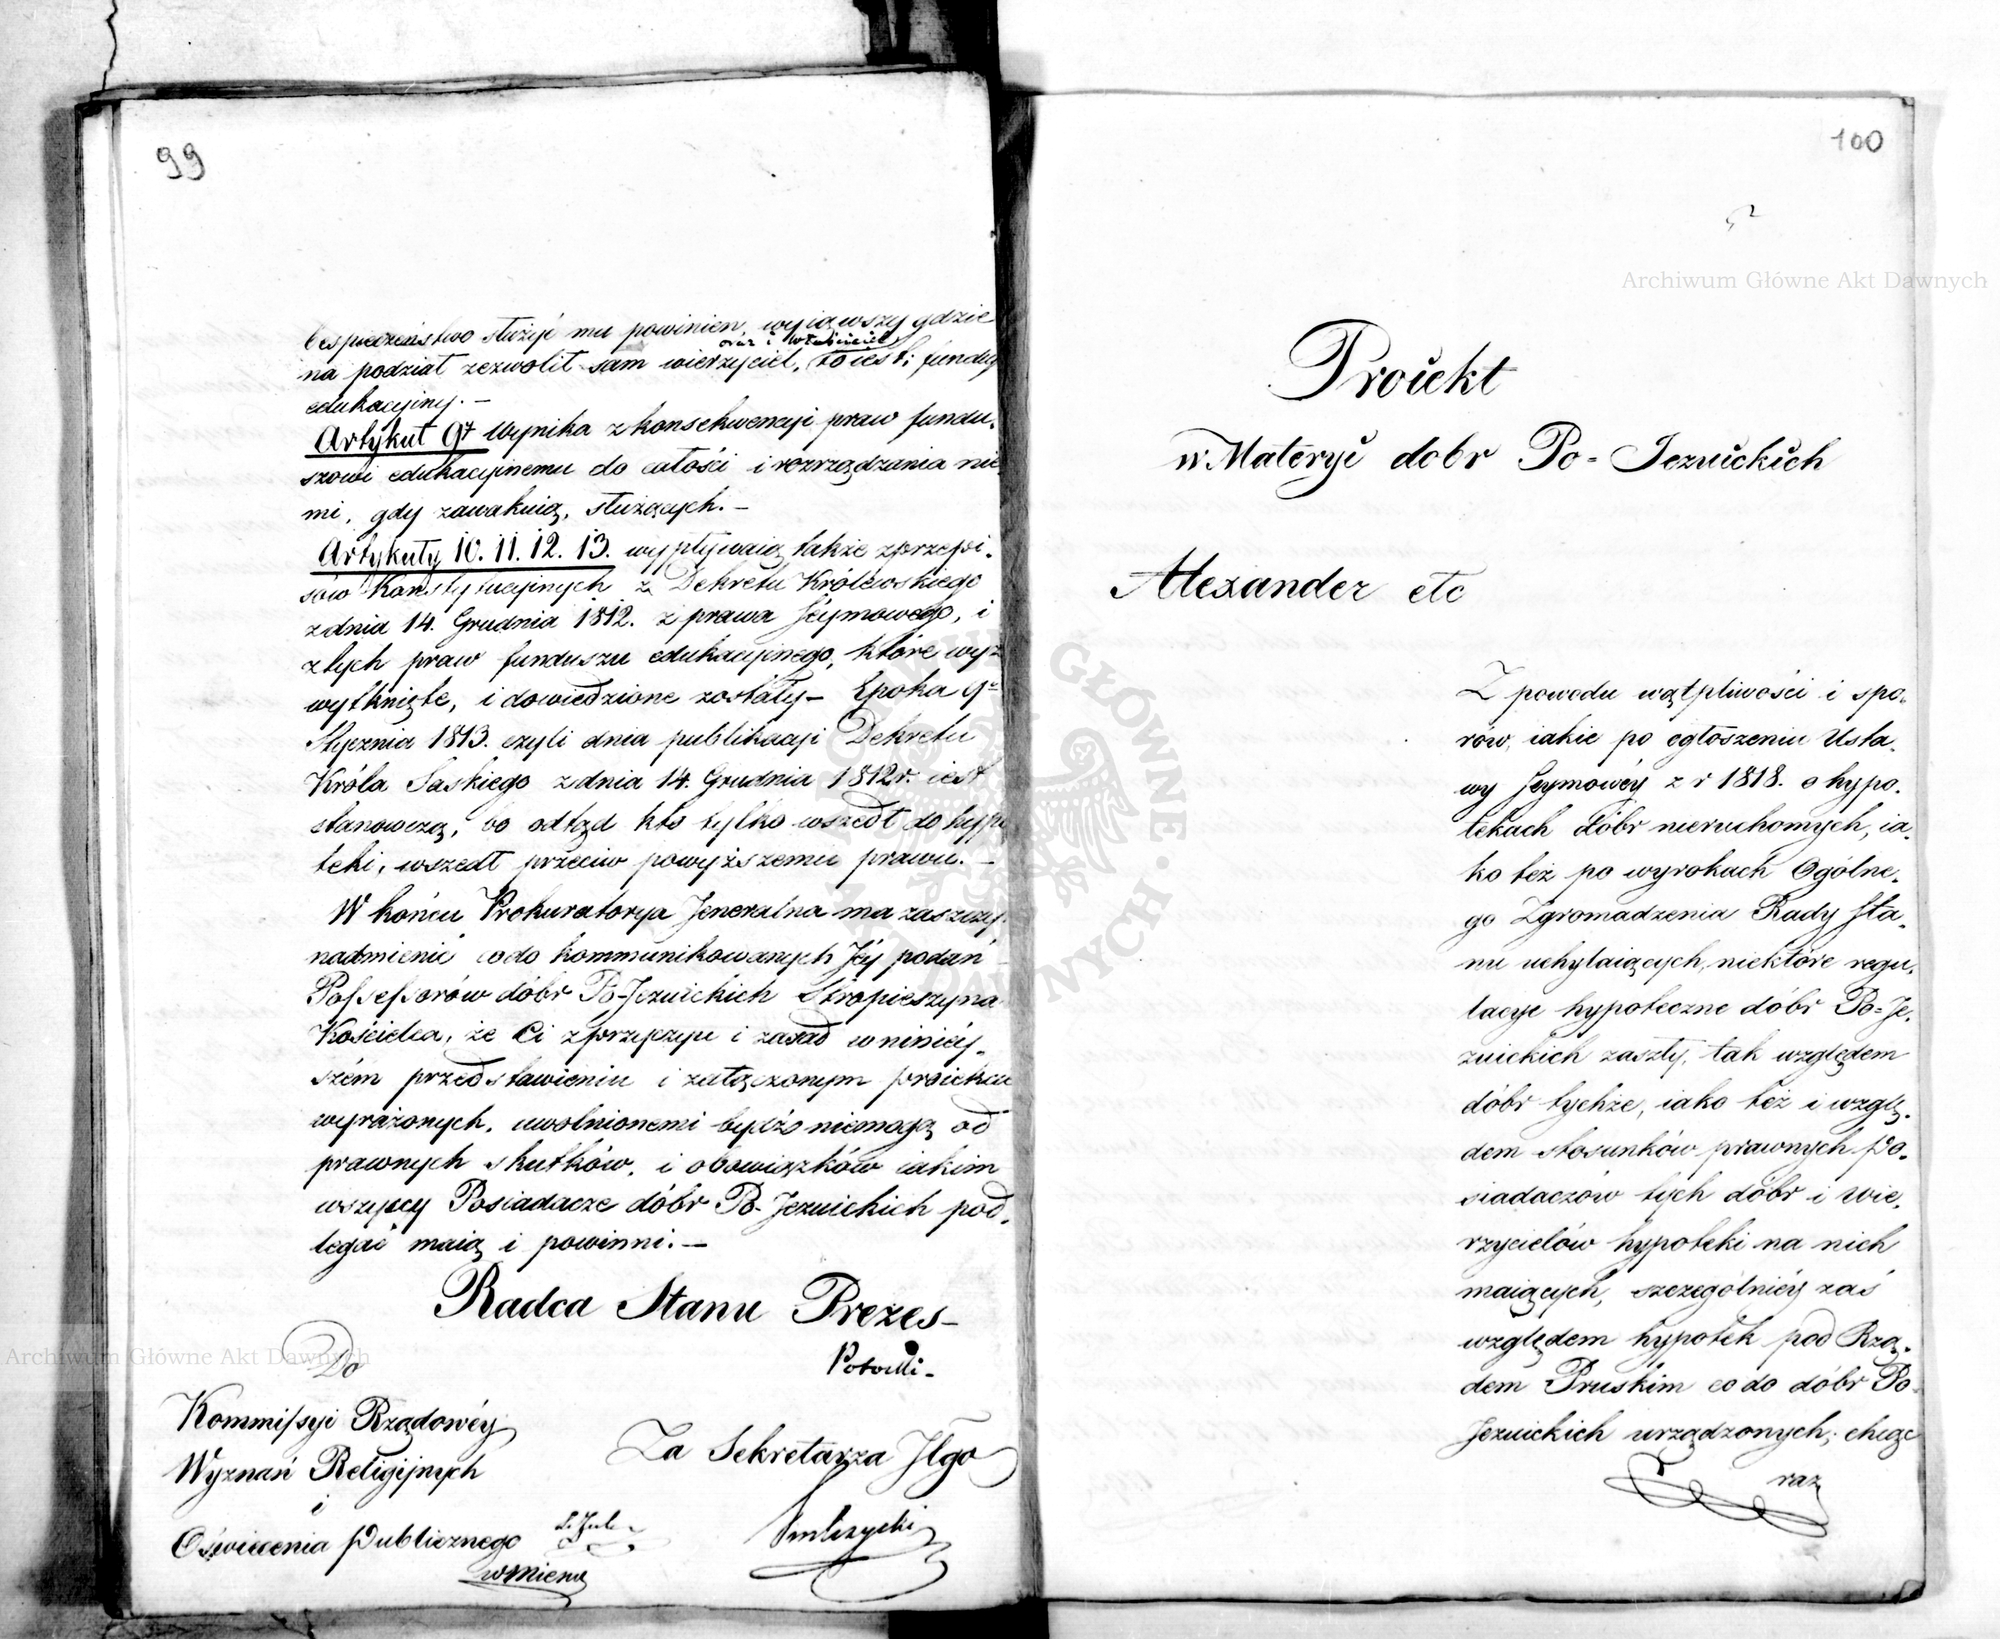 99
bespieczeństwo służyć mu powinien, wyiąwszy gdzie
oraz i właściciel
na podział zezwolił sam wierzyciel, to iest: fundusz
edukacyiny. –
Artykuł 9ty Wynika z konsekwencyi praw fundu-
szowi edukacyinemu do całości i rozrządzania nie-
mi, gdy zawakuią, służących. –
Artykuły 10. 11. 12. 13. wypływaią także z przepi-
sów Konstytucyinych z Dekretu Królewskiego
z dnia 14. Grudnia 1812. z prawa Seymowego, i
z tych praw funduszu edukacyinego, które wyż
wytknięte, i dowiedzione zostały – Epoka 9go
Stycznia 1813. czyli dnia publikacyi Dekretu
Króla Saskiego z dnia 14. Grudnia 1812 r. iest
stanowczą, bo odtąd kto tylko wszedł do hypo
teki, wszedł przeciw powyższemu prawu. –
W końcu Prokuratorya Jeneralna ma zaszczyt
nadmienić co do kommunikowanych Jéy podań
Possessorów dóbr Po-Jezuickich Stropieszyna
Kościelca, że Ci z przyczyn i zasad w niniéy-
szém przedstawieniu i załączonym proiekcie
wyrażonych, uwolnionemi bydź niemogą od
prawnych skutków, i obowiązków iakim
wszyscy Posiadacze dóbr Po-Jezuickich pod-
legać maią i powinni. –
Radca Stanu Prezes –
Potocki –
Do
Kommissyi Rządowéy
Wyznań Religijnych
i
Oświecenia Publicznego
w Mieście
Za Sekretarza Jlgo
100
Proiekt
w Materyi dobr Po-Jezuickich
Alexander etc
Z powodu wątpliwości i spo-
rów, iakie po ogłoszeniu Usta-
wy Seymowéy z r 1818. o hypo-
tekach dóbr nieruchomych, ia-
ko też po wyrokach Ogólne-
go Zgromadzenia Rady Sta-
nu uchylaiących, niektóre regu-
lacye hypoteczne dóbr Po-Je-
zuickich zaszły, tak względem
dóbr tychże, iako też i wzglę-
dem stosunków prawnych po-
siadaczów tych dóbr i wie-
rzycielów hypoteki na nich
maiących, szczególniéy zaś
względem hypotek pod Rzą-
dem Pruskim co do dóbr Po-
Jezuickich urządzonych; chcąc
raz
Archiwum Główne Akt Dawnych
Archiwum Główne Akt Dawnych